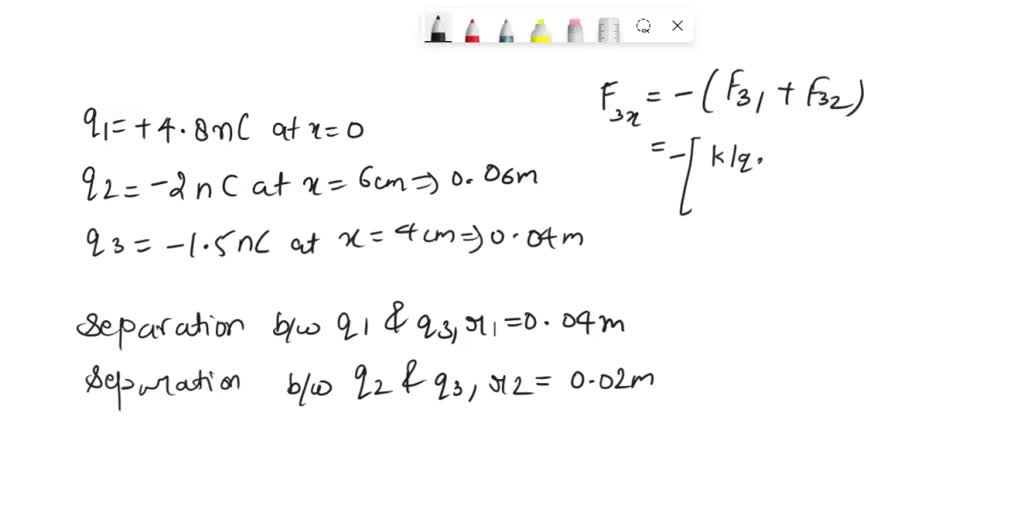 q1 = +4.8nC at x=0
q2 = -2nC at x= 6cm ⇒ 0.06m
q3 = -1.5nC at x=4cm ⇒ 0.04m
Separation b/w q1 & q3, r1 = 0.04m
Separation b/w q2 & q3, r2 = 0.02m
F3x = -(F31 + F32)
= -[ k|q.